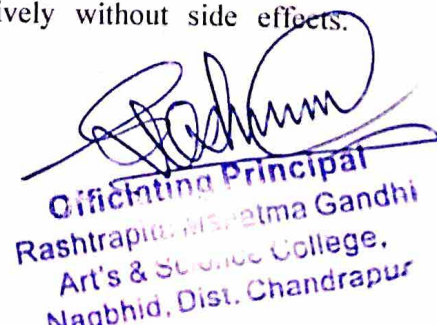 ively without side effects.
Officiating Principal
Rashtrapita Mahatma Gandhi
Art's & Science College,
Nagbhid, Dist. Chandrapur